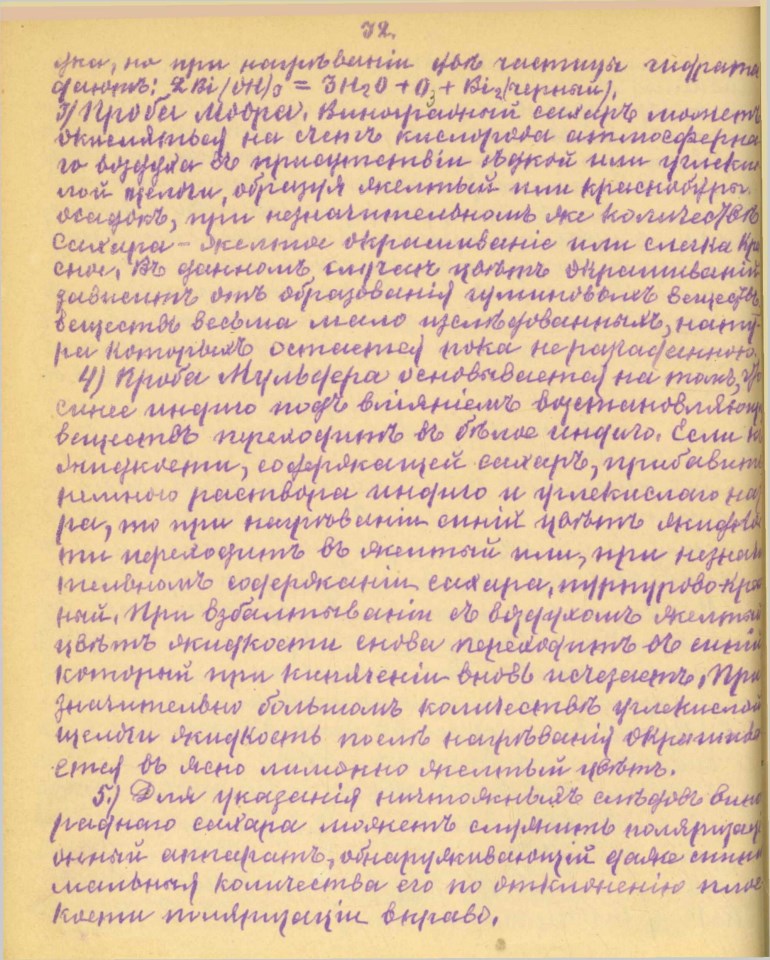 32.
ука, но при нагрѣваніи двѣ частицы гидрата
даютъ: 2Bi(OH)3 = 3H2O + O3 + Bi2 (черный).
3) Проба Мόра. Виноградный сахаръ можетъ
окисляться на счетъ кислорода атмосферна
го воздуха въ присутствіи ѣдкой или углекис
лой щелочи, образуя желтый или краснобуры
осадокъ, при незначительномъ же количествѣ
сахара - желтое окрашиваніе или слегка кра
сное. Въ данномъ случаѣ цвѣтъ окрашиваній
зависитъ отъ образованія гуминовыхъ веществъ
веществъ весьма мало изслѣдованныхъ, нату
ра которыхъ остается пока неразгаданною.
4) Проба Мульдера основывается на томъ, что
синее индиго подъ вліяніемъ возстановляющ
веществъ переходитъ въ бѣлое индиго. Если къ
жидкости, содержащей сахаръ, прибавить
немного раствора индиго и углекислаго нат
ра, то при нагрѣваніи синій цвѣтъ жидкос
ти переходитъ въ желтый или, при незнач
тельномъ содержаніи сахара, пурпурово-крас
ный. При взбалтываніи съ воздухомъ желтый
цвѣтъ жидкости снова переходитъ въ синій
который при кипяченіи вновь исчезаетъ. При
значительно большомъ количествѣ углекислой
щелочи жидкость послѣ нагрѣванія окрашива
ется въ ясно лимонно желтый цвѣтъ.
5) Для указанія ничтожныхъ слѣдовъ вино
раднаго сахара можетъ служить поляризац
онный аппаратъ, обнаруживающій даже мини
мальныя количества его по отклоненію плос
кости поляризаціи вправо.